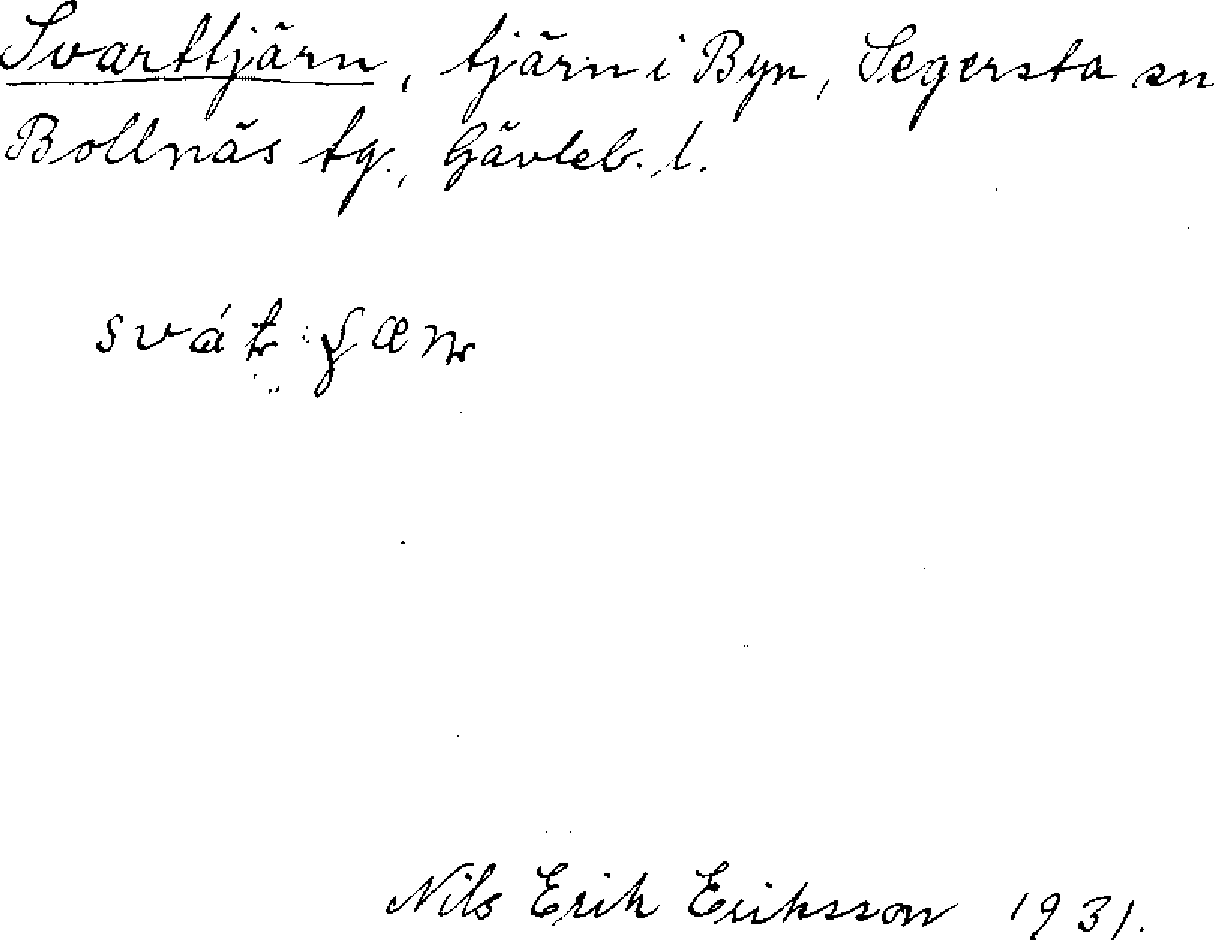 Svarttjärn, tjärn i Byn, Segersta sn
Bollnäs tg., Gävleb. l.
Nils Erik Eriksson 1931.